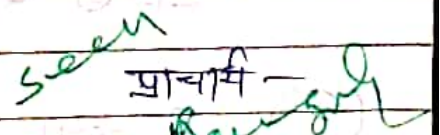 seen
प्राचार्य -